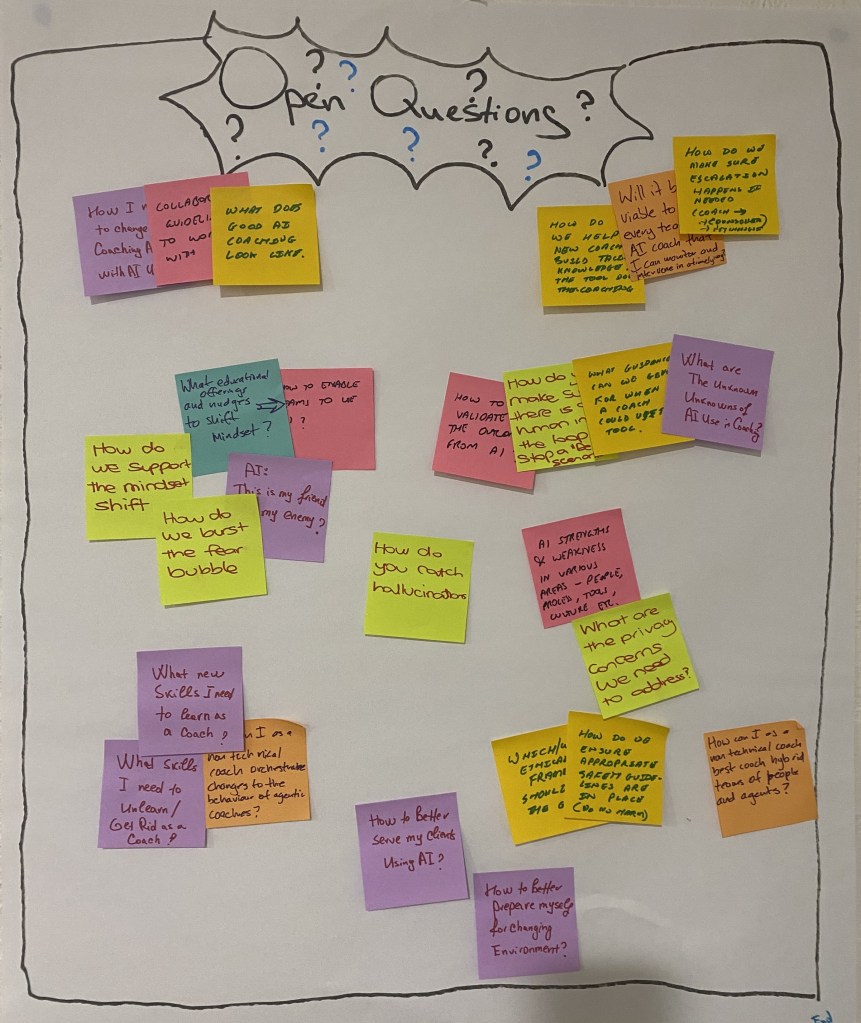 Open Questions
? ? ? ? ? ? ? ? ?
How I
to change
Coaching A
with AI
COLLABOR
GUIDELI
TO WO
WITH
WHAT DOES
GOOD AI
COACHING
LOOK LIKE.
HOW DO
WE HELP
NEW COACH
BUILD
KNOWLEDGE
THE TOOL DO
THE COACHING
Will it b
viable to
every tea
AI coach that
I can monitor and
intervene in a timely?
HOW DO WE
MAKE SURE
ESCALATION
HAPPENS IF
NEEDED
(COACH →
→ COUNSELOR)
What educational
offerings
and nudges
to shift
Mindset?
OW TO ENABLE
AMS TO
?
How do
we support
the mindset
shift
AI:
This is my friend
my enemy?
How do
we burst
the fear
bubble
HOW TO
VALIDATE
THE OUT
FROM AI
How do y
make su
there is a
human in
the loop
Stop a
scenar
WHAT GUIDANCE
CAN WE
FOR WHEN
A COACH
COULD USE
TOOL.
What are
The Unknown
Unknowns of
AI Use in Coaching?
How do
you catch
hallucinations
AI STRENGTHS
& WEAKNESS
IN VARIOUS
AREAS - PEOPLE,
PROCESS, TOOLS,
CULTURE ETC.
What are
the privacy
concerns
we need
to address?
What new
Skills I need
to learn as
a Coach?
What Skills
I need to
Unlearn/
Get Rid as a
Coach?
n I as a
non technical
coach orchestrate
changes to the
behaviour of agentic
coaches?
WHICH/
ETHICAL
FRAM
SHOUL
HOW DO WE
ENSURE
APPROPRIATE
SAFETY GUIDE-
LINES ARE
IN PLACE
(DO NO HARM)
How can I as a
non technical coach
best coach hybrid
teams of people
and agents?
How to Better
serve my clients
Using AI?
How to Better
prepare myself
for changing
Environment?
End